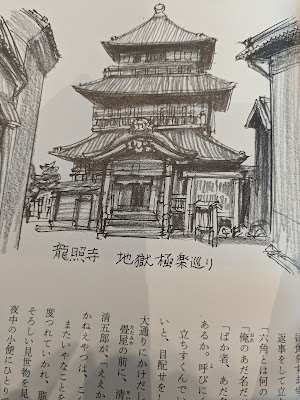 龍照寺　地獄極楽巡り
返事をして
「六角とは何の
「俺のあだ名だ
「ばか者、あだ
あるか。呼びに
立ちすくんで
いと、目配せを
大通りにかけだ
畳屋の前に、清
清五郎が、「ええか
かねえやつは、こ
またいやなことを
度つれていかれ、龍
そろしい見世物を見
夜中の小便にひとり